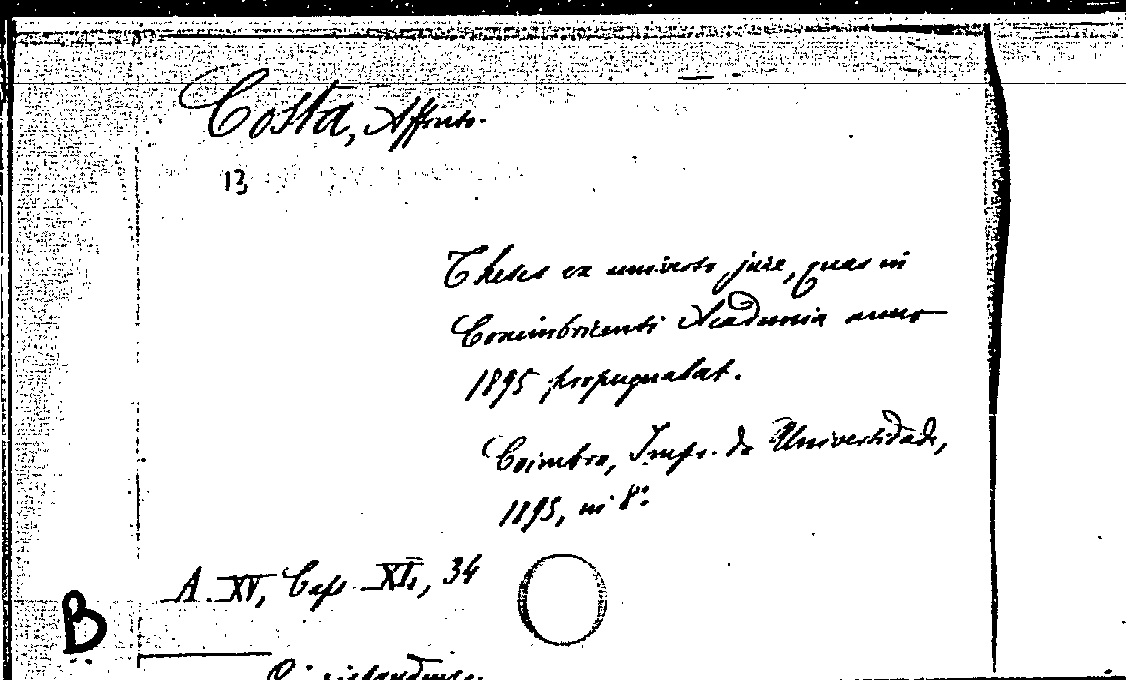 Costa, Affonso.
13
Theses ex universo jure, quas in
Conimbricensi Academia anno
1895 propugnabat.
Coimbra, Impr. da Universidade,
1895, in 8º
A. XV, Cap. XI, 34
B